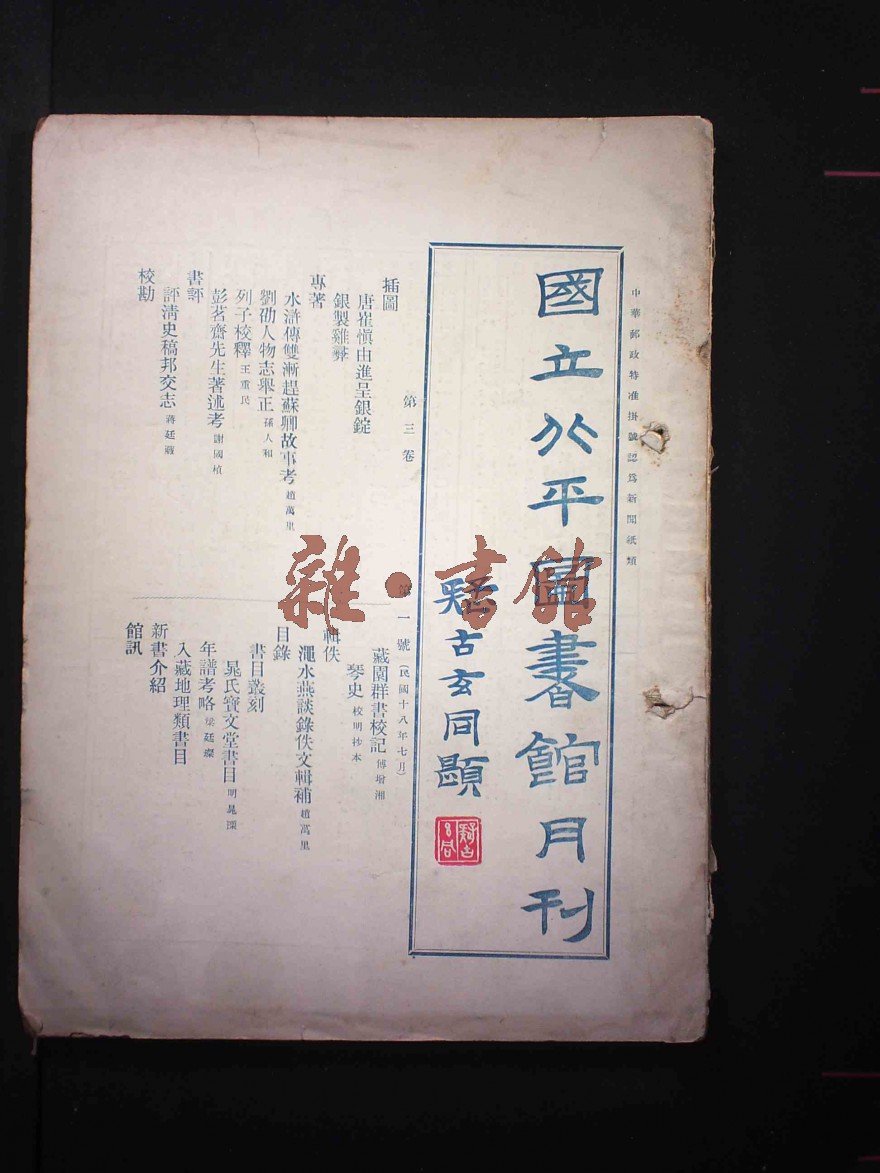 中華郵政特准掛號認爲新聞紙類
國立北平圖書館月刊
疑古玄同題
第三卷 第一號(民國十八年七月)
插圖
唐崔愼由進呈銀錠
銀製雞彝
專著
水滸傳雙漸趕蘇卿故事考 趙萬里
劉劭人物志舉正 孫人和
列子校釋 王重民
彭茗齋先生著述考 謝國楨
書評
評清史稿邦交志 蔣廷黻
校勘
藏園群書校記 傅增湘
琴史 校明抄本
輯佚
澠水燕談錄佚文輯補 趙萬里
目錄
書目叢刻
晁氏寶文堂書目 明晁瑮
年譜考略 梁廷燦
入藏地理類書目
新書介紹
館訊
雜·書館